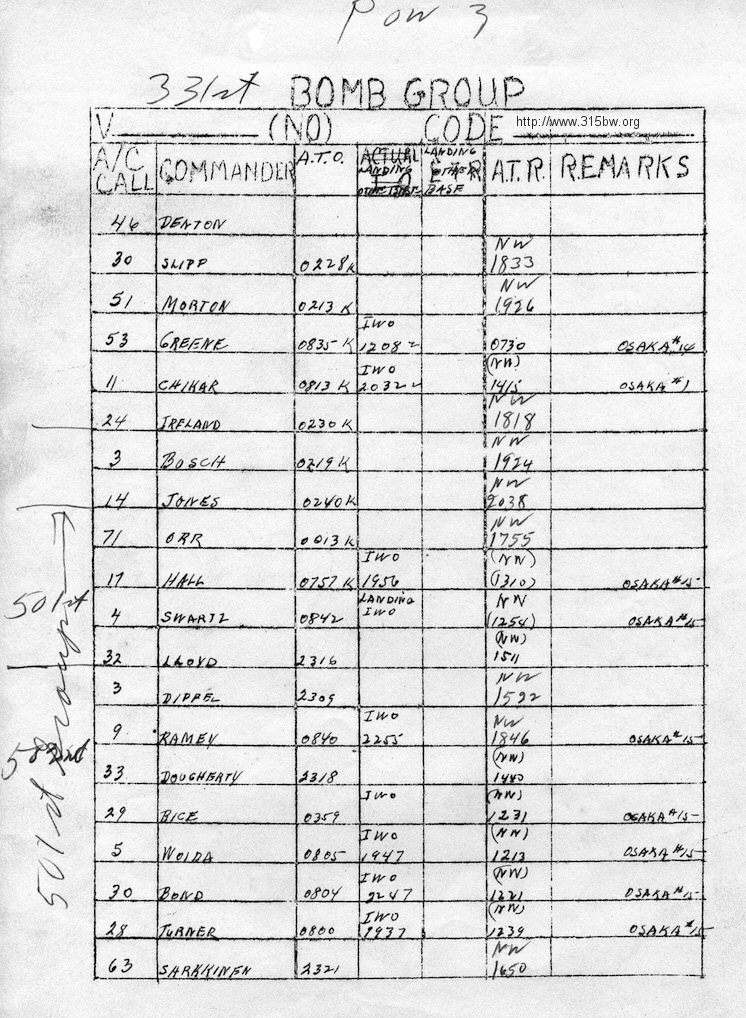 POW 3
331st BOMB GROUP
V (NO) CODE http://www.315bw.org
A/C CALL COMMANDER A.T.O. ACTUAL LANDING LANDING OTHER BASE A.T.R. REMARKS
46 DENTON
30 SLIPP 0228K NW 1833
51 MORTON 0213K NW 1926
53 GREENE 0835K IWO 1208Z 0730 OSAKA #14
11 CHIKAR 0813K IWO 2032Z (NW) 1415 OSAKA #1
24 IRELAND 0230K NW 1818
3 BOSCH 0219K NW 1924
14 JONES 0240K NW 2038
71 ORR 0013K NW 1755
17 HALL 0757K IWO 1956 (NW) (1310) OSAKA #15
4 SWARTZ 0842 LANDING IWO NW (1254) OSAKA #15
32 LLOYD 2316 (NW) 1511
3 DIPPEL 2309 NW 1522
9 RAMEY 0840 IWO 2255 NW 1846 OSAKA #15
33 DOUGHERTY 2318 (NW) 1440
29 RICE 0359 IWO (NW) 1231 OSAKA #15
5 WOIDA 0805 IWO 1947 (NW) 1213 OSAKA #15
30 BOND 0804 IWO 2247 (NW) 1221 OSAKA #15
28 TURNER 0800 IWO 1937 (NW) 1239 OSAKA #15
63 SARKKINEN 2321 NW 1650
501st
502nd
501st Group